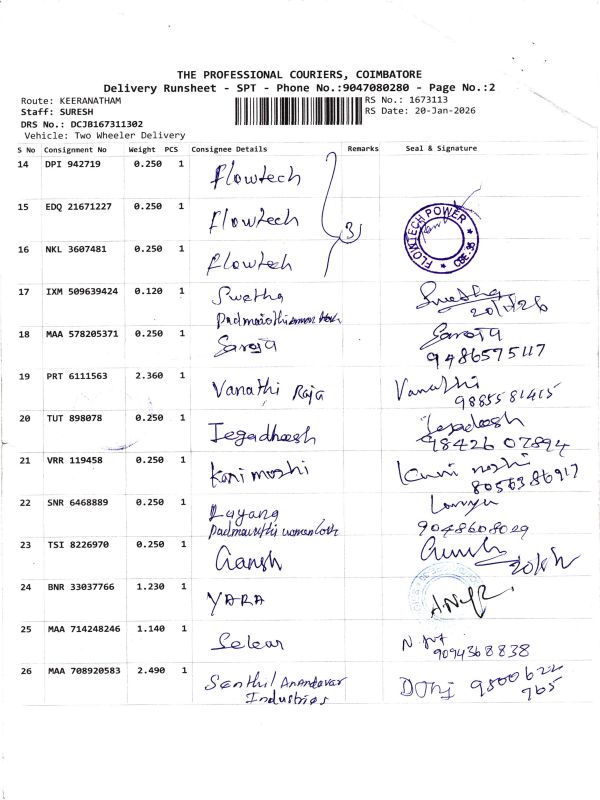 THE PROFESSIONAL COURIERS, COIMBATORE
Delivery Runsheet - SPT - Phone No.:9047080280 - Page No.:2
Route: KEERANATHAM
RS No.: 1673113
Staff: SURESH
RS Date: 20-Jan-2026
DRS No.: DCJB167311302
Vehicle: Two Wheeler Delivery
S No Consignment No Weight PCS Consignee Details Remarks Seal & Signature
14 DPI 942719 0.250 1 Flowtech
15 EDQ 21671227 0.250 1 Flowtech 3 FLOWTECH POWER CBE-35
16 NKL 3607481 0.250 1 Flowtech
17 IXM 509639424 0.120 1 Swetha Swetha
20/1/26
18 MAA 578205371 0.250 1 Saroja Saroja
9486575117
19 PRT 6111563 2.360 1 Vanathi Raja Vanathi
9885581415
20 TUT 898078 0.250 1 Jegadheesh
98426 07894
21 VRR 119458 0.250 1 Kani moshi
8056386917
22 SNR 6468889 0.250 1
9048608029
23 TSI 8226970 0.250 1 Ganesh
24 BNR 33037766 1.230 1 YARA
25 MAA 714248246 1.140 1 Selear
9094368838
26 MAA 708920583 2.490 1 Senthil Anandavar
Industries
9500622
765